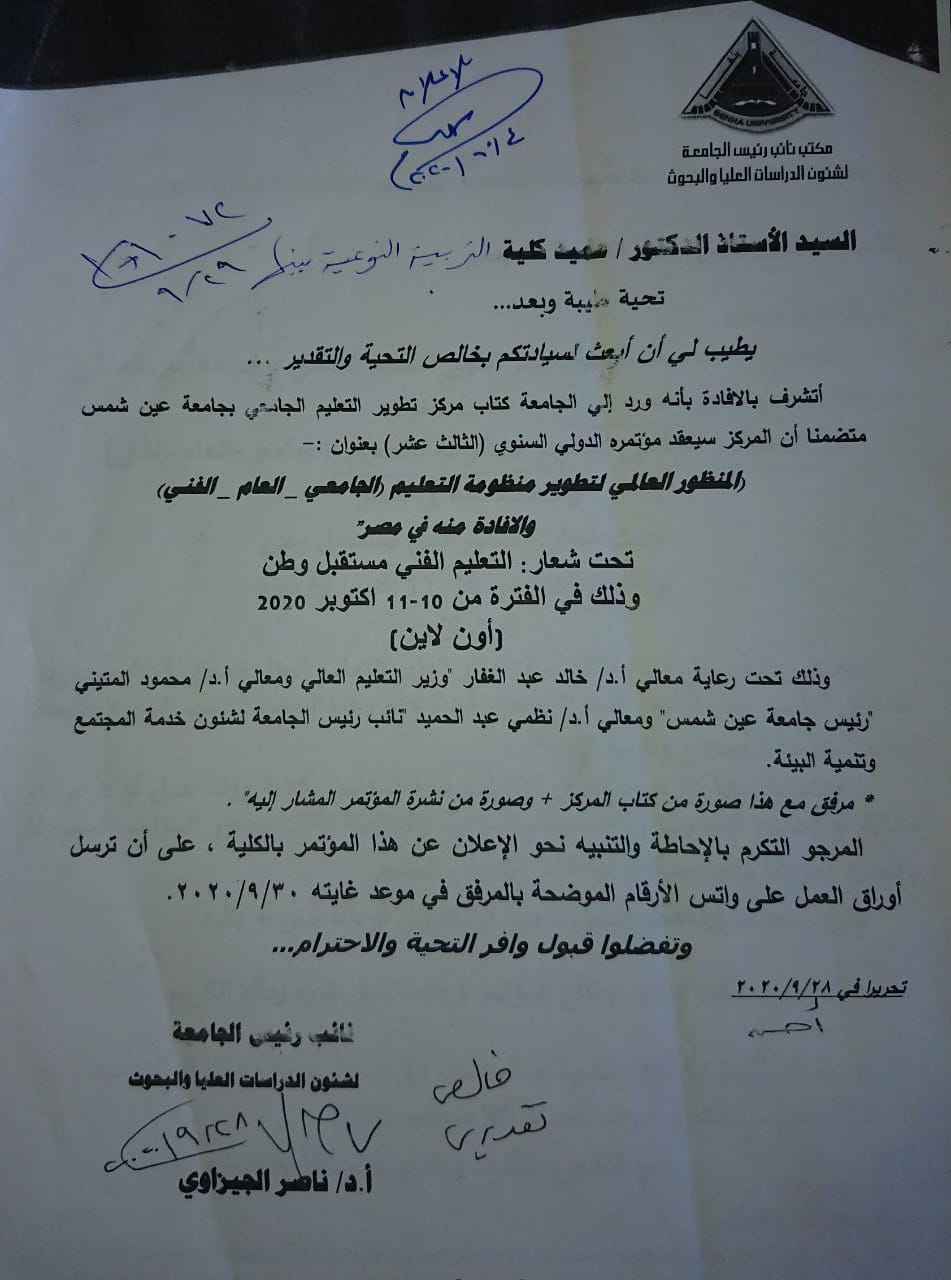 BENHA UNIVERSITY
مكتب نائب رئيس الجامعة
لشئون الدراسات العليا والبحوث
للإعلام
السيد الأستاذ الدكتور / عميد كلية التربية النوعية ببنها
٩/٢٩
تحية طيبة وبعد...
يطيب لي أن أبعث لسيادتكم بخالص التحية والتقدير ...
أتشرف بالافادة بأنه ورد إلي الجامعة كتاب مركز تطوير التعليم الجامعي بجامعة عين شمس
متضمنا أن المركز سيعقد مؤتمره الدولي السنوي (الثالث عشر) بعنوان :-
(المنظور العالمي لتطوير منظومة التعليم (الجامعي _ العام _ الفني)
والافادة منه في مصر"
تحت شعار: التعليم الفني مستقبل وطن
وذلك في الفترة من 10-11 اكتوبر 2020
(أون لاين)
وذلك تحت رعاية معالي أ.د/ خالد عبد الغفار "وزير التعليم العالي ومعالي أ.د/ محمود المتيني
"رئيس جامعة عين شمس" ومعالي أ.د/ نظمي عبد الحميد "نائب رئيس الجامعة لشئون خدمة المجتمع
وتنمية البيئة.
* مرفق مع هذا صورة من كتاب المركز + وصورة من نشرة المؤتمر المشار إليه" .
المرجو التكرم بالإحاطة والتنبيه نحو الإعلان عن هذا المؤتمر بالكلية ، على أن ترسل
أوراق العمل على واتس الأرقام الموضحة بالمرفق في موعد غايته ٢٠٢٠/٩/٣٠.
وتفضلوا قبول وافر التحية والاحترام...
تحريرا في ٢٠٢٠/٩/٢٨
نائب رئيس الجامعة
لشئون الدراسات العليا والبحوث
خالص
تقديري
٢٠٢٠/٩/٢٨
أ.د/ ناصر الجيزاوي